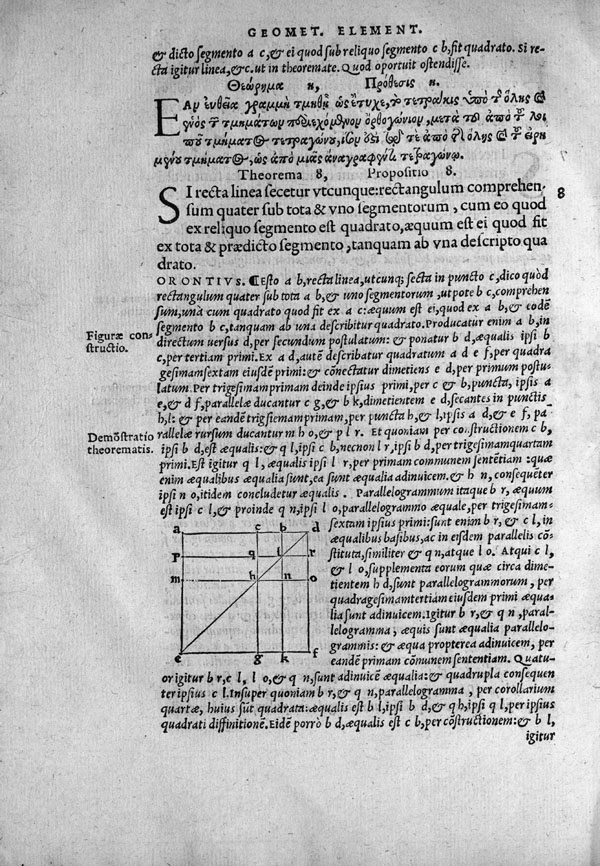 GEOMET. ELEMENT.
& dicto segmento a c, & ei quod sub reliquo segmento c b, fit quadrato. Si re-
cta igitur linea, &c. ut in theoremate. Quod oportuit ostendisse.
Θεώρημα η, Πρόθεσις η.
ΕΑν ευθεῖα γραμμὴ τμηθῇ ὡς ἔτυχε, τὸ τετράκις ὑπὸ τ ὅλης
Theorema 8, Propositio 8.
SI recta linea secetur vtcunque: rectangulum comprehen- 8
sum quater sub tota & vno segmentorum, cum eo quod
ex reliquo segmento est quadrato, æquum est ei quod fit
ex tota & prædicto segmento, tanquam ab vna descripto qua
drato.
ORONTIVS. ¶Esto a b, recta linea, utcunq; secta in puncto c, dico quòd
rectangulum quater sub tota a b, & uno segmentorum, utpote b c, comprehen
sum, unà cum quadrato quod fit ex a c: æquum est ei, quod ex a b, & eodē
segmento b c, tanquam ab una describitur quadrato. Producatur enim a b, in
Figuræ con- directum uersus d, per secundum postulatum: & ponatur b d, æqualis ipsi b
structio. c, per tertiam primi. Ex a d, autē describatur quadratum a d e f, per quadra
gesimamsextam eiusdē primi: & cōnectatur dimetiens e d, per primum postu-
latum. Per trigesimamprimam deinde ipsius primi, per c & b, puncta, ipsis a
e, & d f, parallelæ ducantur c g, & b k, dimetientem e d, secantes in punctis
h, l: & per eandē trigsiemamprimam, per puncta h, & l, ipsis a d, & e f, pa
Demōstratio rallelæ rursum ducantur m h o, & p l r. Et quoniam per constructionem c b,
theorematis. ipsi b d, est æqualis: & q l, ipsi c b, necnon l r, ipsi b d, per trigesimamquartam
primi. Est igitur q l, æqualis ipsi l r, per primam communem sentētiam: quæ
enim æqualibus æqualia sunt, ea sunt æqualia adinuicem. & h n, consequēter
ipsi n o, itidem concludetur æqualis. Parallelogrammum itaque b r, æquum
est ipsi c l, & proinde q n, ipsi l o, parallelogrammo æquale, per trigesimam-
sextam ipsius primi: sunt enim b r, & c l, in
æqualibus basibus, ac in eisdem parallelis cō-
stituta, similiter & q n, atque l o. Atqui c l,
& l o, supplementa eorum quæ circa dime-
tientem h d, sunt parallelogrammorum, per
quadragesimamtertiam eiusdem primi æqua-
lia sunt adinuicem. Igitur b r, & q n, paral-
lelogramma, æquis sunt æqualia parallelo-
grammis: & æqua propterea adinuicem, per
eandē primam cōmunem sententiam. Quatu-
a c b d
p q l r
m h n o
e g k f
or igitur b r, c l, l o, & q n, sunt adinuicē æqualia: & quadrupla consequen
ter ipsius c l. Insuper quoniam b r, & q n, parallelogramma, per corollarium
quartæ, huius sūt quadrata: æqualis est b l, ipsi b d, & q h, ipsi q l, per ipsius
quadrati diffinitionē. Eidē porrò b d, æqualis est c b, per cōstructionem: & b l,
igitur